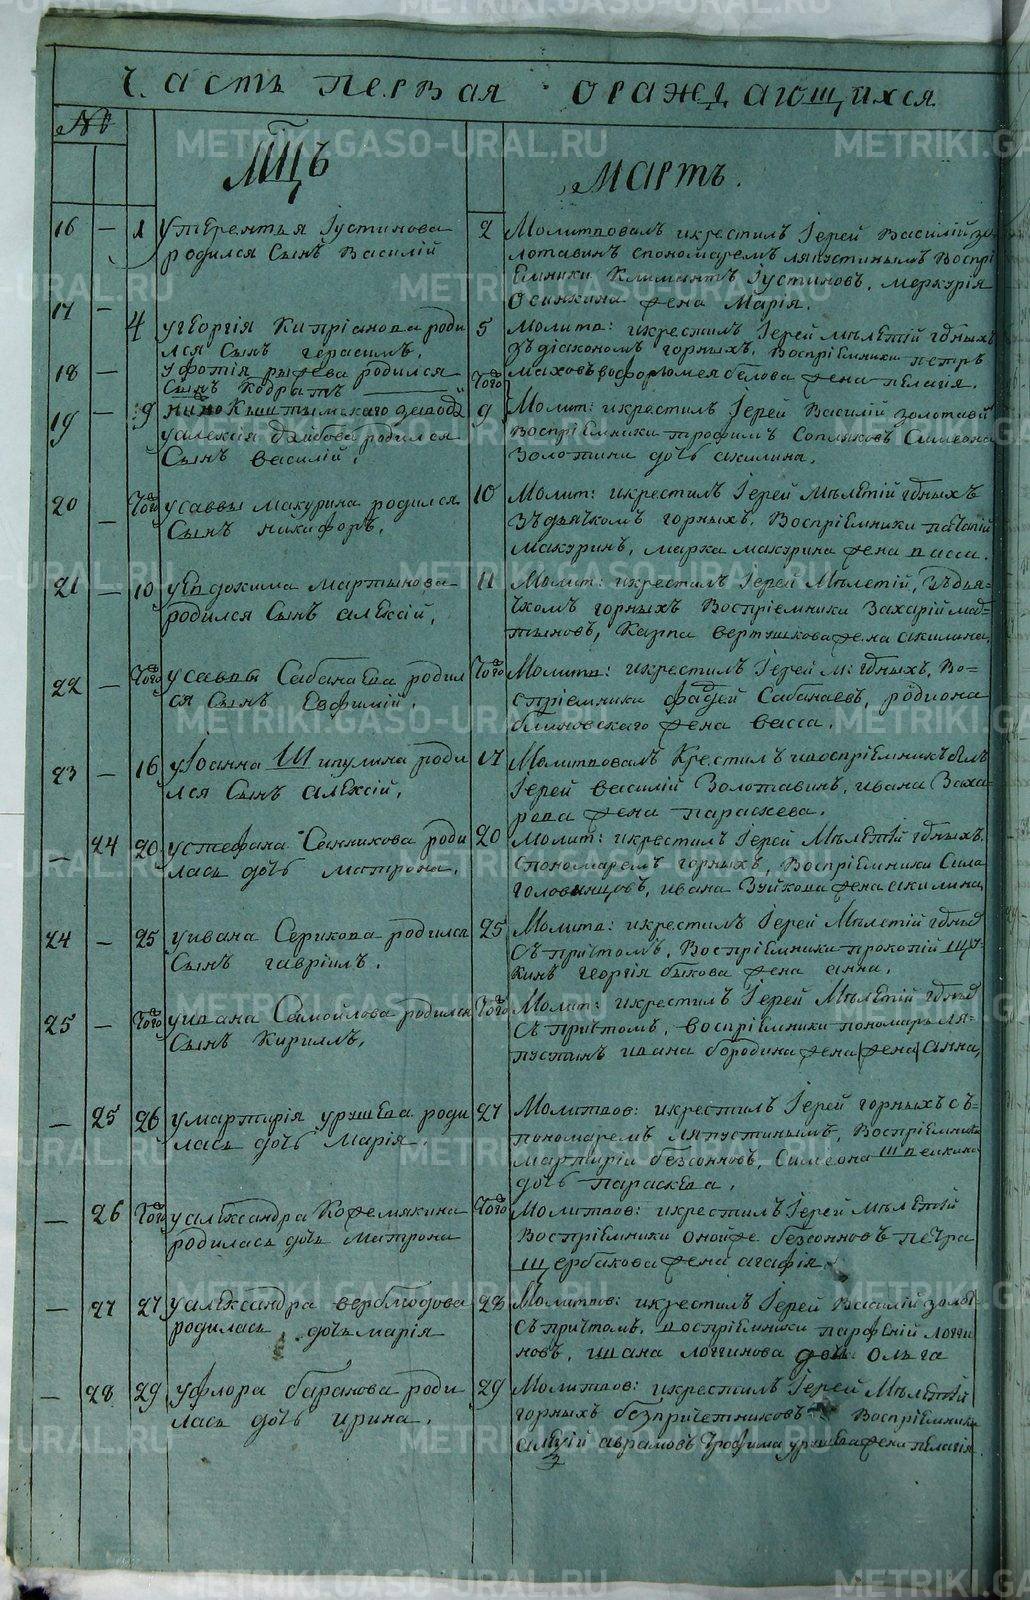 Часть первая о раждающихся
№
Мць Мартъ.
16 — 1 у терентья Iустинова
родился Сынъ Василiй
2 Молитвовалъ икрестилъ Iерей Василiй зо
лотавинъ спономаремъ ляпустинымъ Воспрi
Емники Климантъ Iустиновъ, меркурiя
Осинкина жена Марiя.
17 — 4 у георгiя Кипрiанова роди
лся Сынъ герасимъ.
5 Молитв: икрестилъ Iерей мѣлетiй горныхъ
здiакономъ горныхъ. Воспрiемники петръ
18 — у фотiя рыжева родился
Сынъ Кодратъ
Того маховъ варфоломея белова жена пелагiя.
19 — 9 Кыштымскаго завода
у алексiя родился
Сынъ василiй.
9 Молит: икрестилъ Iерей Василiй золотавi
Воспрiемники трофимъ Сопляковъ Симеона
Золотина дочь акилина.
20 — Тогож у саввы макурина родился
Сынъ никифоръ.
10 Молит: икрестилъ Iерей Мѣлетiй горныхъ
Здьячкомъ горныхъ. Воспрiемники
Макуринъ, марка макурина жена васса.
21 — 10 у евдокима мартынова
родился Сынъ алексiй.
11 Молит: икрестилъ Iерей Мѣлетiй, Здья=
чкомъ горныхъ Воспрiемники Захарiй мар=
тыновъ, Карпа вертушкова жена акилина.
22 — Тогож у саввы Сабанаева родил
ся Сынъ Евфимiй.
Тогож Молитв: икрестилъ Iерей м: горныхъ, Во=
спрiемники фадей Сабанаевъ, родиона
блиновскаго жена васса.
23 — 16 у Iоанна Шипулина роди
лся Сынъ алексiй.
17 Молитвовалъ Крестилъ ивоспрiемникъ былъ
Iерей василiй Золотавинъ, ивана Заха
рова жена параскева.
— 24 20 у стефана Санникова роди
лась дочь матрона.
20 Молит: икрестилъ Iерей Мѣлетiй горныхъ.
Спономаремъ горныхъ, Воспрiемники Сила
Головинцовъ, ивана Зуйкова жена акилина
24 — 25 у ивана Серикова родился
Сынъ гаврiилъ.
25 Молитв: икрестилъ Iерей Мѣлетiй горных
Спричтомъ. Воспрiемники прокопiй Щу=
кинъ георгiя быкова жена анна.
25 — Тогож у ивана Самойлова родился
Сынъ Кириллъ,
Тогож Молит: икрестилъ Iерей Мѣлетiй горных
Спричтомъ, воспрiемники пономарь ля=
пустинъ ивана бородина жена /жена/ анна,
— 25 26 у мартирiя урушева роди
лась дочь Марiя.
27 Молитвов: икрестилъ Iерей горныхъ съ=
пономаремъ ляпустинымъ, Воспрiемники
мартирiй безсонновъ, Симеона
дочь параскева.
— 26 Тогож у александра Кожемякина
родилась дочь матрона
Тогож Молитвов: икрестилъ Iерей Мѣлетiй
Воспрiемники безсонновъ петра
Щербакова жена агафiя.
— 27 27 у александра верблюдова
родилась дочь марiя
28 Молитвов: икрестилъ Iерей Василiй золот
Спричтомъ. воспрiемники парфенiй логги
новъ, ивана логгинова дочь ольга
— 28 29 у флора баранова роди
лась дочь ирина.
29 Молитвов: икрестилъ Iерей Мѣлетiй
горныхъ безпричетниковъ Воспрiемники
аврамовъ трофима урушева жена пелагiя